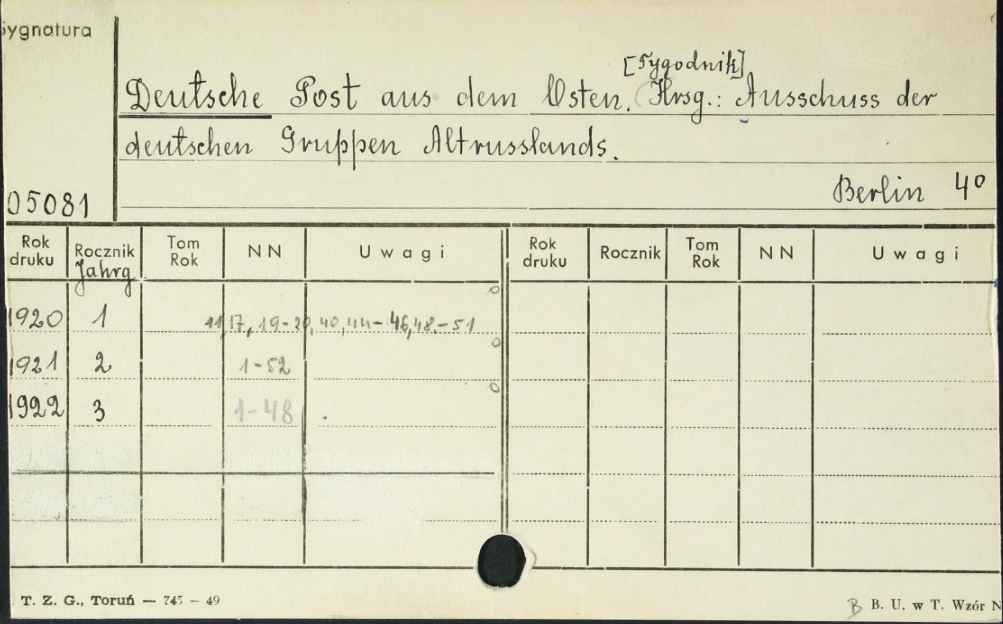 Sygnatura
[Tygodnik]
Deutsche Post aus dem Osten. Hrsg.: Ausschuss der
deutschen Gruppen Altrusslands.
05081
Berlin 4°
Rok druku Rocznik Tom Rok NN Uwagi Rok druku Rocznik Tom Rok NN Uwagi
Jahrg
1920 1 11,17, 19-20, 40, 44-46, 48-51
1921 2 1-52
1922 3 1-48
T. Z. G., Toruń — 745 — 49
B B. U. w T. Wzór N